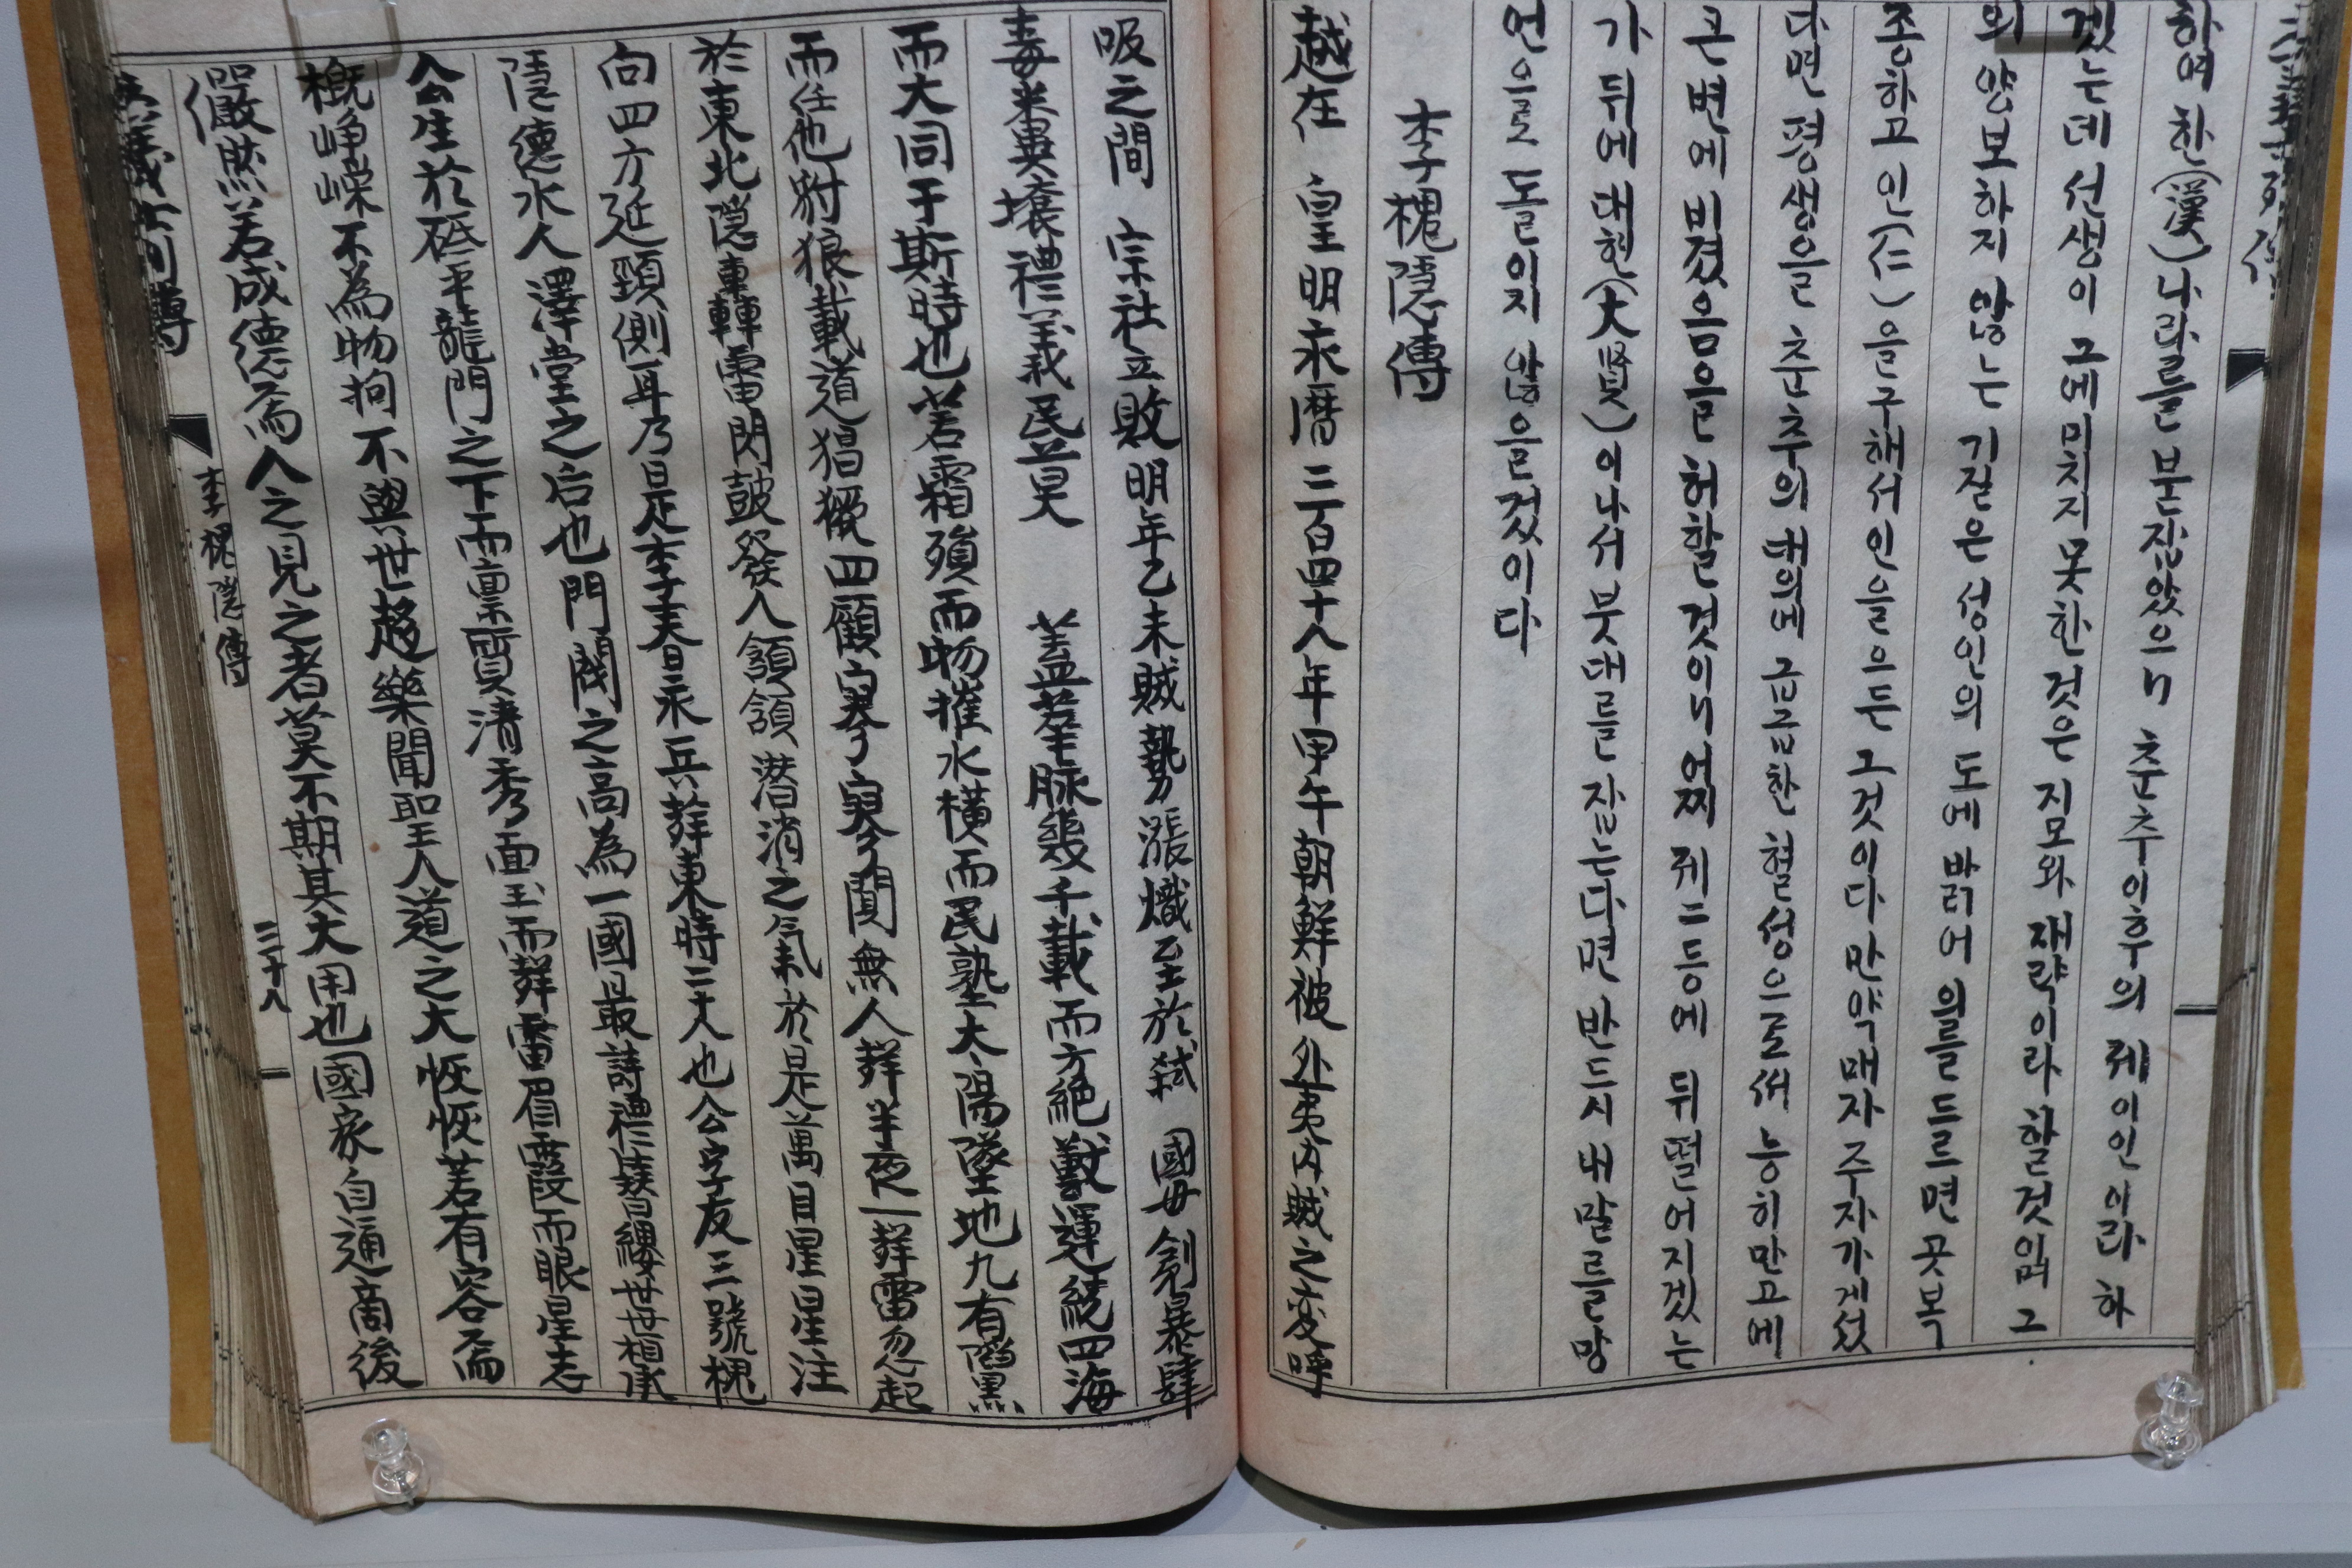 하여 한(漢)나라를 붇잡았으니 춘추이후의 제이인이라 하
겠는데 선생이 그에 미치지 못한 것은 지모와 재략이라 할것임 그
의 양보하지 않는 기질은 성인의 도에 밝어 의를 드르면 곳 복
종하고 인(仁)을 구해서 인을 으든 그것이다 만약 매자 주자가 게섰
다면 평생을 춘추의 대의에 급급한 혈성으로써 능히 만고에
큰 변에 비겼음을 허할 것이니 어찌 제二등에 뒤떨어지겠는
가 뒤에 대현(大賢)이 나서 붓대를 잡는다면 반드시 내 말를 망
언으로 돌이지 않을 것이다
李槐隱傳
越在 皇明永曆三百四十八年甲午朝鮮被外夷內賊之変呼
吸之間 宗社立敗明年乙未賊勢漲熾至於弑 國母刳暴肆
毒米糞壤禮義我民並昊 蓋老脉幾千載而方絕獸運繞四海
而大同于斯時也若霜殞而物摧水橫而民塾大陽墜地九有黑
而任他豺狼載道猖獗四顧寥寥閴無人聲半夜一聲雷忽起
於東北隱轟轉雷閃鼓發人頷頷潜消之气於是萬目星星注
向四方延頸側耳乃是李春永兵聲東時二十八也公字友三號槐
隱德水人澤堂之后也門閥之高為一國最詩禮簪纓世世相承
公生於砥平龍門之下而稟質淸秀面玉而聲雷眉霞而眼星志
槪崢嶸不為物拘不與世趍樂聞聖人道之大恢恢若有容而
儼然若成德而人之見之者莫不期其大用也國家自通商後
李槐隱傳
二十八